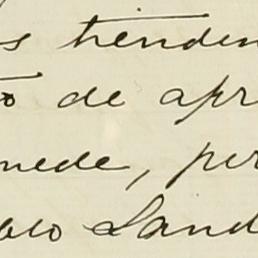 s tienden
to de apr
uede, per
blo Land